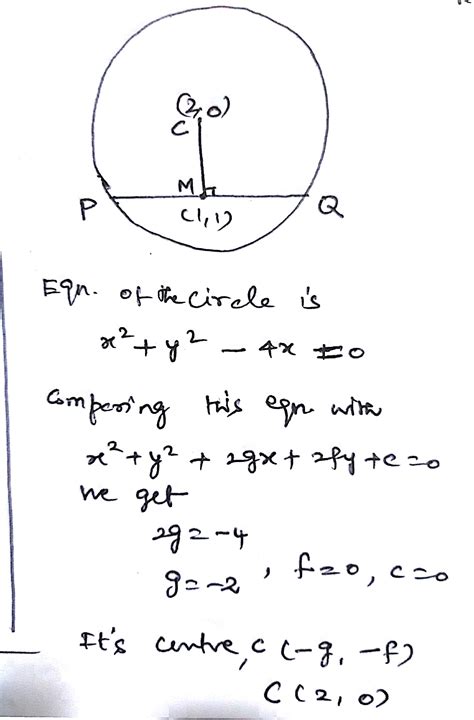 (2,0)
C
M
P
(1,1)
Q
Eqn. of the circle is
x² + y² - 4x = 0
Comparing this eqn with
x² + y² + 2gx + 2fy + c = 0
we get
2g = -4
g = -2 , f = 0, c = 0
It's centre, C (-g, -f)
C (2, 0)